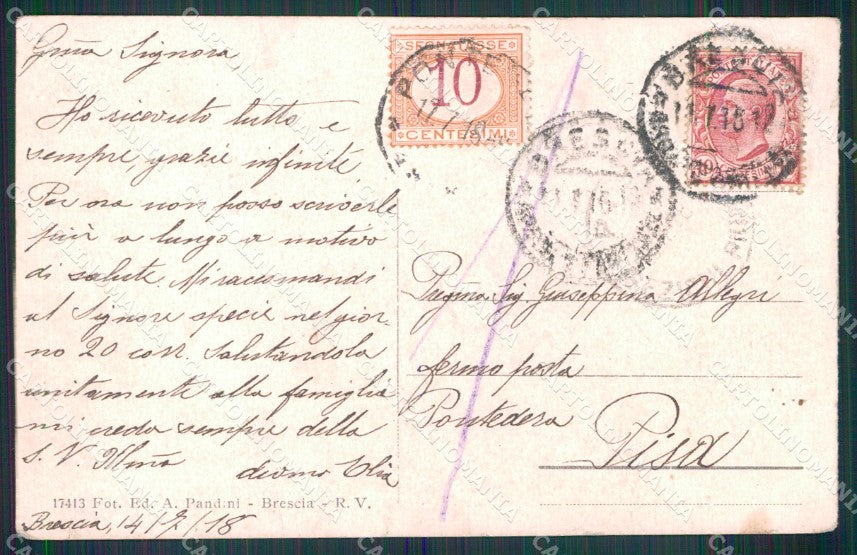 Gma Signora
Ho ricevuto tutto e
sempre, grazie infinite.
Per ora non posso scriverle
più a lungo a motivo
di salute. Mi raccomandi
al Signore specie nel gior-
no 20 corr. Salutandola
unitamente alla famiglia
mi creda sempre della
S. V. Illma
devmo Elia
17413 Fot. Ed. A. Pandini - Brescia - R. V.
Brescia, 14/7/18
SEGNATASSE
10
CENTESIMI
BRESCIA
BRESCIA
Pregma Sig. Giuseppina Allegri
fermo posta
Pontedera
Pisa
CARTOLINOMANIA